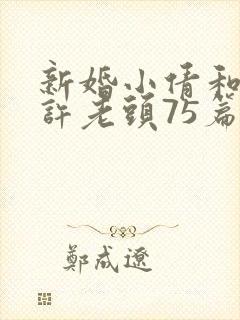 新婚小倩和
許老頭75篇
鄭成遼